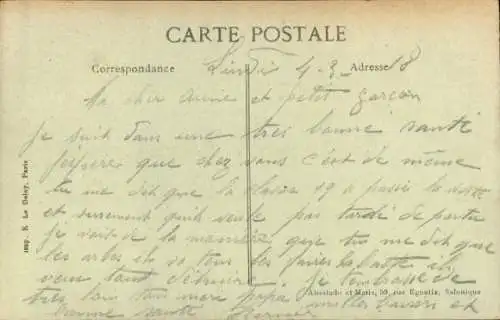 CARTE POSTALE
Correspondance
Adresse
Lundi 4-3-18
Ma cher amie et petit garcon
Je suit dans une tres bonne santé
j'espere que chez vous c'est de même
tu me dit que la classe 19 a passer la visite
et surement quils veule pas tardé de partir
je vois de la manière que tu me dit que
les arbes il va tous les faires
veux tout détruire. Je tembrasse de
tres bons ton mari papa
bonne santé
Imp. E. Le Deley, Paris
Abastado et Matis, 39, rue Egnatia, Salonique